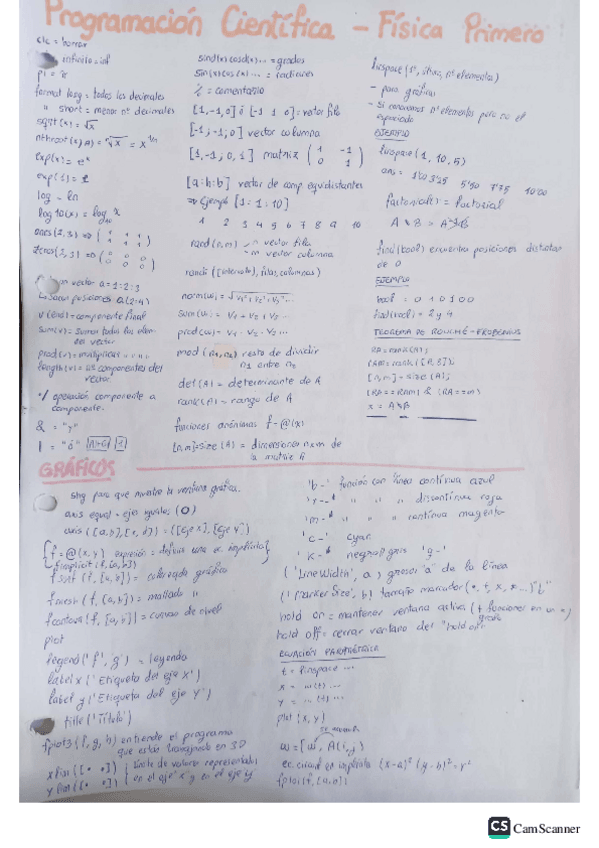 Programación Científica - Física Primero
clc = borrar
infinito = inf
pi = π
format long = todos los decimales
" short = menor nº decimales
sqrt(x) = √x
nthroot(x,n) = ⁿ√x = x^1/n
exp(x) = eˣ
exp(1) = e
log = ln
log10(x) = log₁₀ x
ones(2,3) => (1 1 1
1 1 1)
zeros(2,3) => (0 0 0
0 0 0)
vector a = 1:2:3
sacar posiciones a(2:4)
v(end) = componente final
sum(v) = sumar todos los elem.
del vector
prod(v) = multiplicar " " "
length(v) = nº componentes del
vector.
·/ operación componente a
componente.
& = "y"
| = "ó" AltG 1
sind(x) cosd(x)... = grados
sin(x) cos(x)... = radianes
% = comentario
[1,-1,0] ó [-1 1 0] = vector fila
[-1;-1;0] vector columna
[1,-1;0,1] matriz (1 -1
0 1)
[a:h:b] vector de comp. equidistantes
=> Ejemplo [1:1:10]
1 2 3 4 5 6 7 8 9 10
rand(n,m) - n vector fila
- m vector columna
randi([intervalo], filas, columnas)
norm(v) = √v₁²+v₂²+v₃²...
sum(v) = v₁ + v₂ + v₃
prod(v) = v₁ · v₂ · v₃...
mod(n₁,n₂) resto de dividir
n₁ entre n₂
det(A) = determinante de A
rank(A) = rango de A
funciones anónimas f=@(x)
[n,m]=size(A) = dimensiones nxm de
la matriz A
linspace(1º, último, nº elementos)
- para gráficas
- Si conocemos nº elementos pero no el
espaciado
EJEMPLO
linspace(1,10,5)
ans = 1'00 3'25 5'50 7'75 10'00
factorial() = factorial
A\B = A⁻¹B
find(bool) encuentra posiciones distintas
de 0
EJEMPLO
bool = 0 1 0 1 0 0
find(bool) = 2 y 4
TEOREMA DE ROUCHÉ-FROBENIUS
RA=rank(A);
RAM=rank([A,B]);
[n,m]=size(A);
(RA==RAM) & (RA==m)
x = A\B
GRÁFICOS
shg para que muestre la ventana gráfica.
axis equal = ejes iguales (O)
axis([a,b],[c,d]) = ([eje x],[eje y])
f=@(x,y) expresión = definir una ec. implícita
fimplicit(f,[a,b])
fsurf(f,[a,b]) = coloreado gráfica
fmesh(f,[a,b]) = mallado "
fcontour(f,[a,b]) = curvas de nivel
plot
legend('f','g') = leyenda
xlabel('Etiqueta del eje x')
ylabel('Etiqueta del eje y')
title('Título')
fplot3(f,g,h) entiende el programa
que estás trabajando en 3D
xlim([• •]) límite de valores representados
ylim([• •]) en el eje x y en el eje y
'b-' función con línea continua azul
'r--' " " " discontinua roja
'm-' " " " continua magenta
'c-' cyan
'k-' negro gris 'g-'
('LineWidth', a) grosor "a" de la línea
('MarkerSize', b) tamaño marcador
hold on = mantener ventana activa (+ funciones en un
gráf.
hold off = cerrar ventana del "hold on"
ECUACIÓN PARAMÉTRICA
t = linspace ...
x = ...(t) ...
y = ...(t) ...
plot(x,y)
ec. circunf en implícita (x-a)²+(y-b)²=r²
CS CamScanner